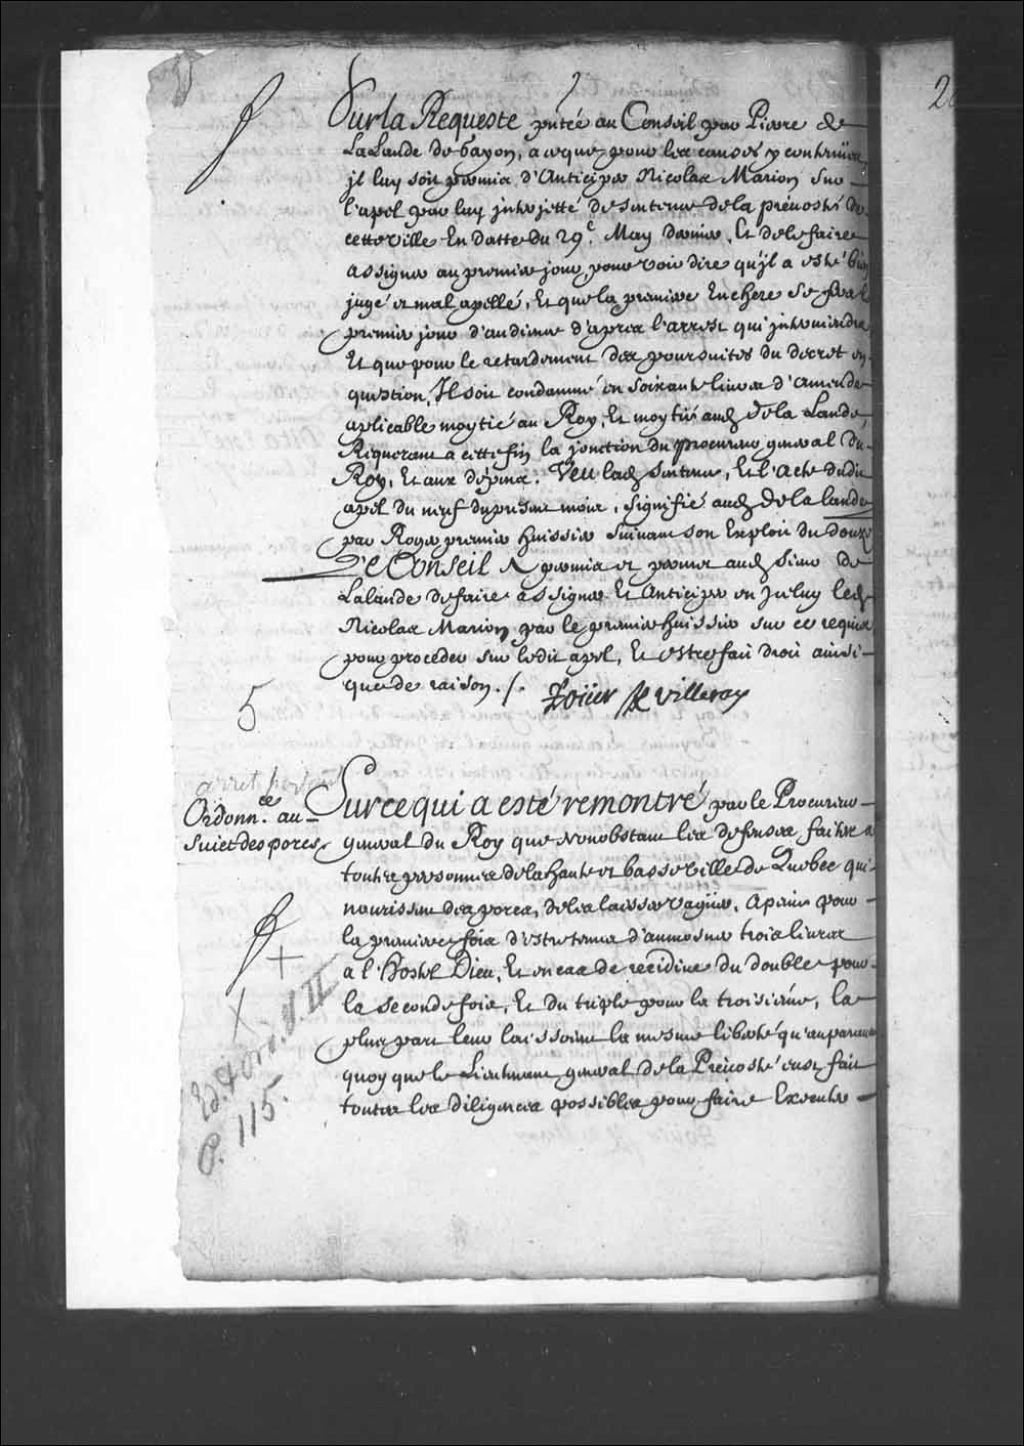 Sur la Requeste pntée au Conseil par Pierre de
La Lande de Gayon, a ce que pour les causes y contenües
jl luy soit permis d'Anticiper Nicolas Marion sur
l'apel par luy jnterjetté de sentence de la prévosté de
cette ville En datte du 29.e May dernier, Et de le faire
assigner au premier jour, pour voir dire qu'jl a esté bien
jugé et mal apellé, Et que la premiere Enchere se fera le
premier jour d'audience d'apres l'arrest qui jnterviendra
Et que pour le retardement des poursuites du decret en
question, Il soit condamné en soixante livres d'amende
aplicable moytié au Roy, Et moytié aud. de la Lande,
Requerant a cette fin la jonction du procureur general du
Roy, Et aux dépens. Veu lad. sentence, Et l'acte dudit
apel du neuf du présent mois, signifié aud. de la lande
par Roger premier huissier suivant son Exploit du douze
Le Conseil A permis et permet aud. sieur de
Lalande de faire assigner Et Anticiper en jceluy led.
Nicolas Marion par le premier huissier sur ce requis
pour proceder sur ledit apel, Et estre fait droit ainsi
que de raison. /.
Roüer de Villeray
5
arret portant
Ordonn.ce au
sujet des porcs
Sur ce qui a esté remontré par le Procureur
general du Roy que nonobstant les defenses faites a
toutes personnes de la haute et basse ville de Quebec qui
nourissent des porcs, de les laisser vaguer, a peine pour
la premiere fois d'estre tenus d'aumosner trois livres
a l'Hostel Dieu, Et en cas de recidive du double pour
la seconde fois, Et du triple pour la troisiéme, la
plus part leur laissoient la mesme liberté qu'auparavant
quoy que le Lieutenant general de la Prévosté eust fait
toutes les diligences possibles pour faire Executer
Ed. & Ord. V. II
P. 115.